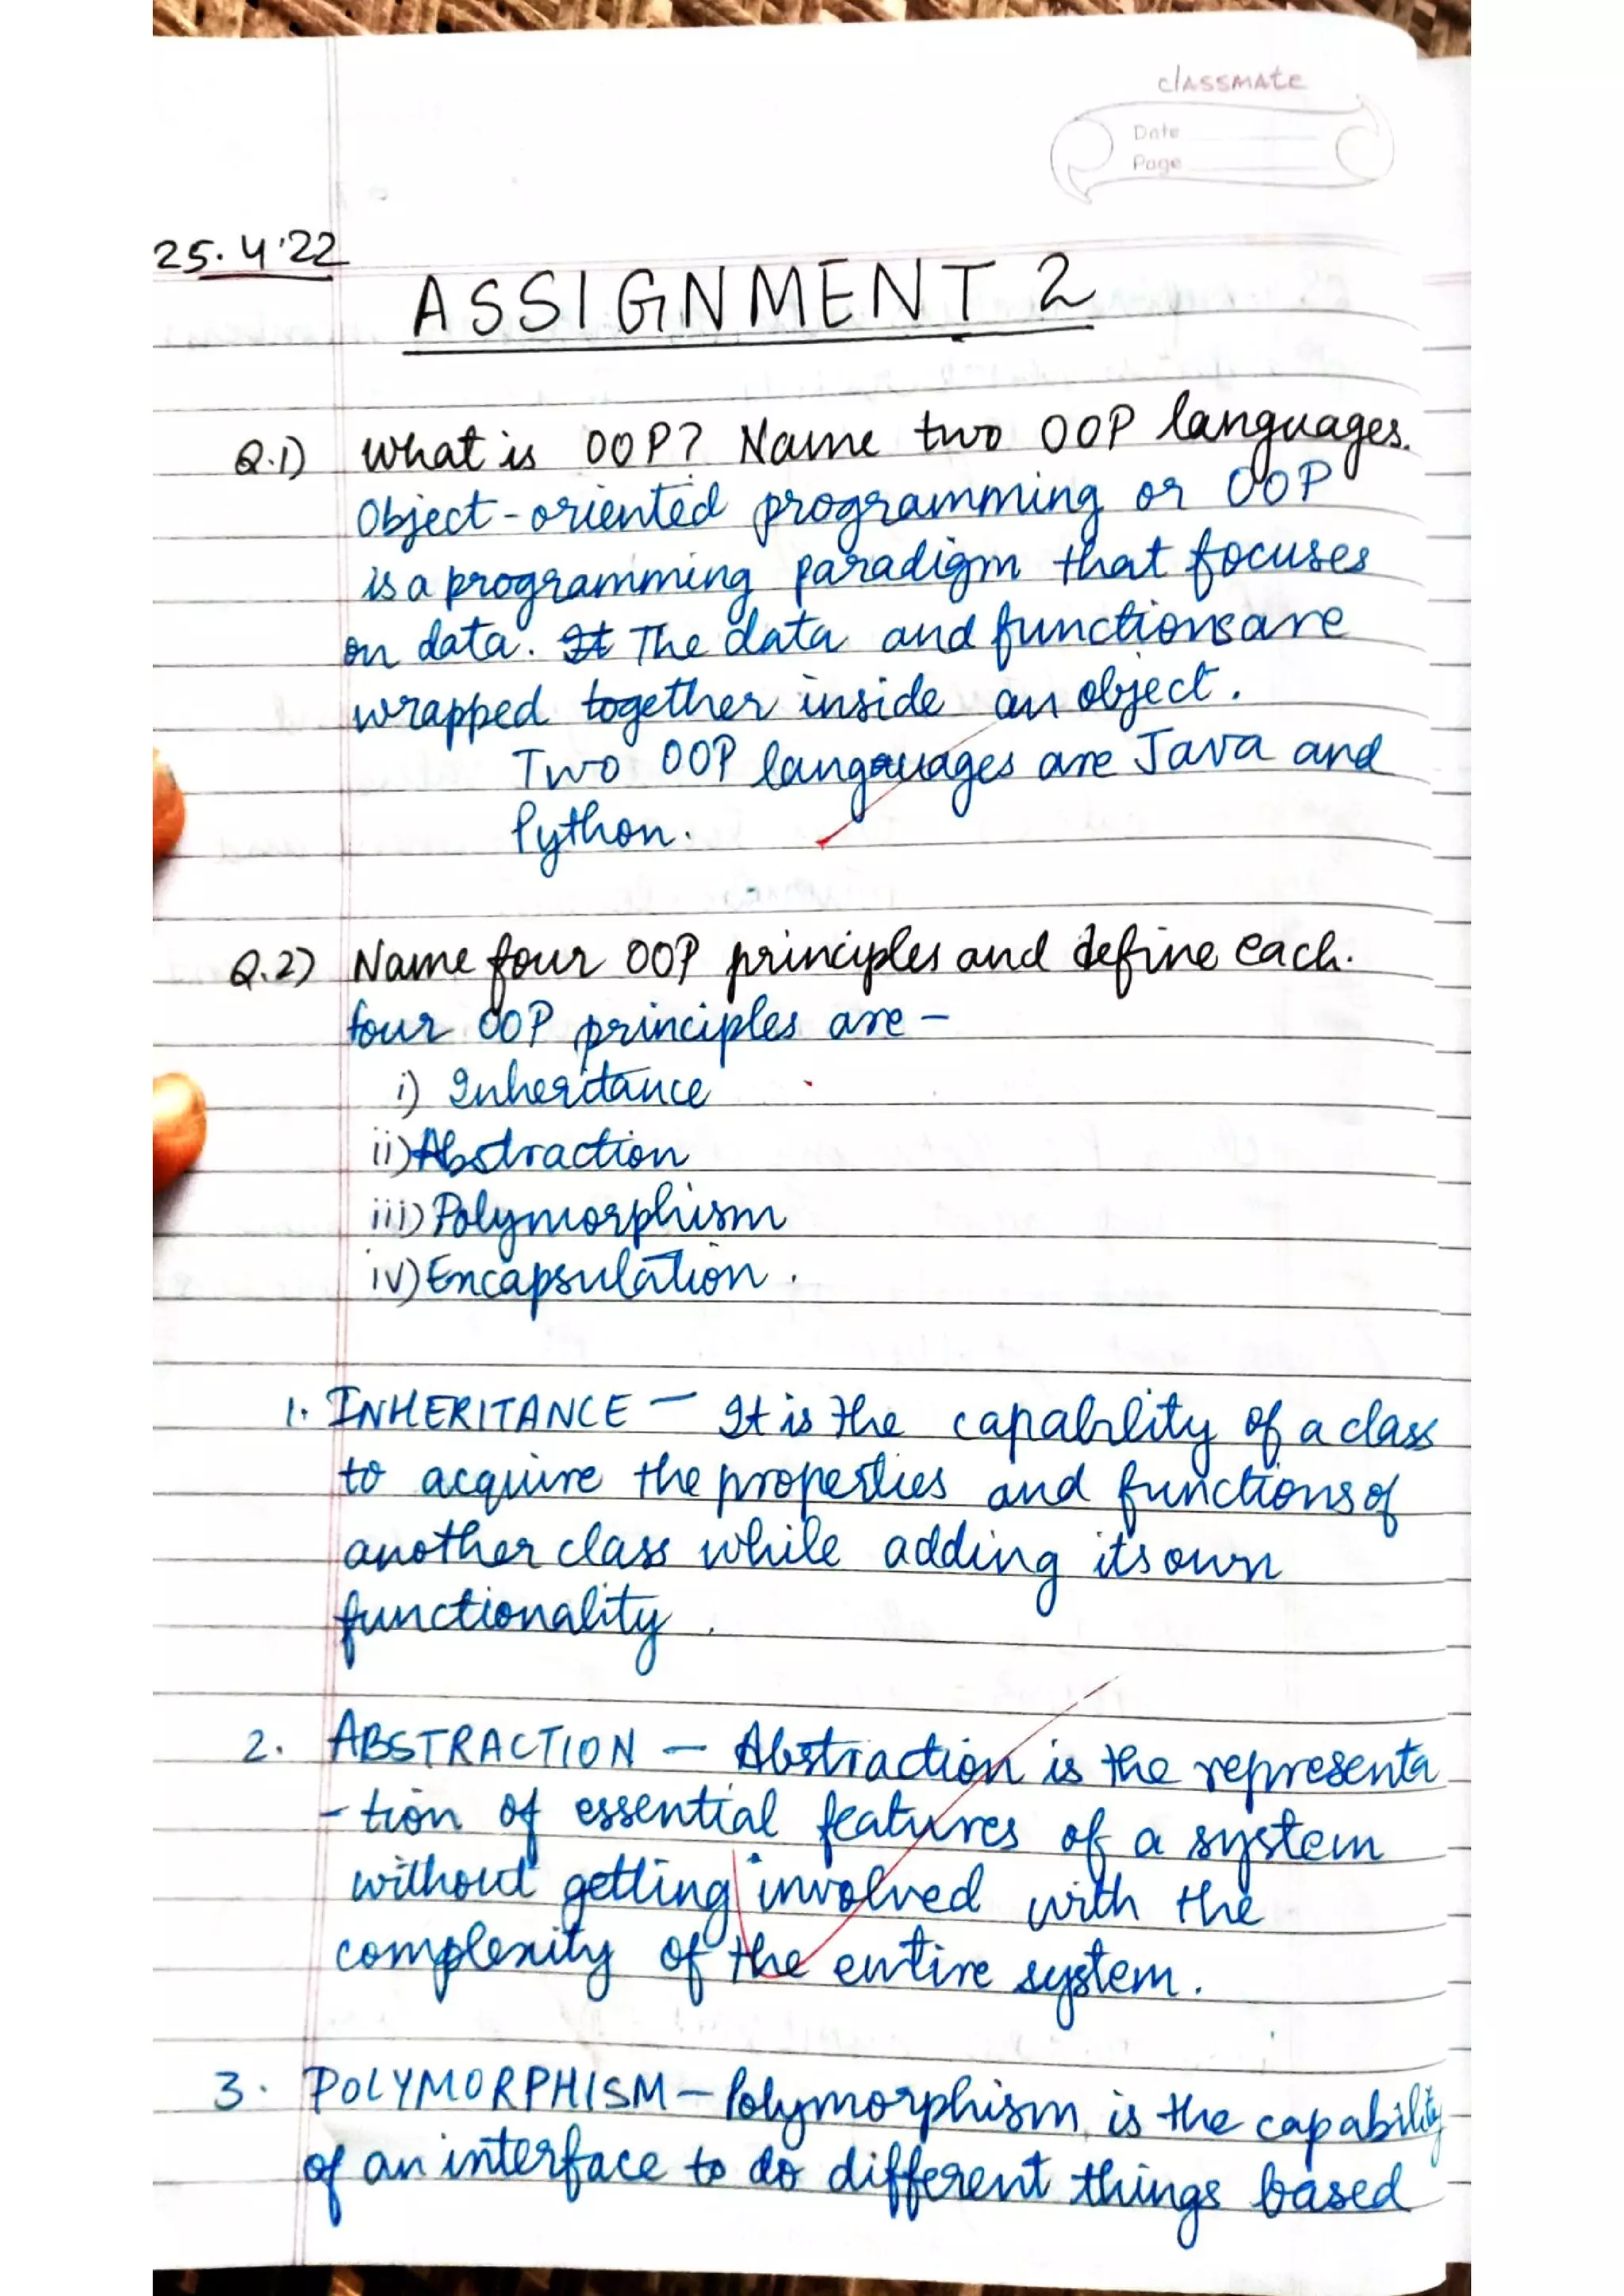 classmate
Date
Page
25.4.22
ASSIGNMENT 2
Q.1) What is OOP? Name two OOP languages.
Object-oriented programming or OOP
is a programming paradigm that focuses
on data. It The data and functions are
wrapped together inside an object.
Two OOP languages are Java and
Python.
Q.2) Name four OOP principles and define each.
Four OOP principles are -
i) Inheritance
ii) Abstraction
iii) Polymorphism
iv) Encapsulation.
1. INHERITANCE - It is the capability of a class
to acquire the properties and functions of
another class while adding its own
functionality.
2. ABSTRACTION - Abstraction is the representa
-tion of essential features of a system
without getting involved with the
complexity of the entire system.
3. POLYMORPHISM - Polymorphism is the capability
of an interface to do different things based